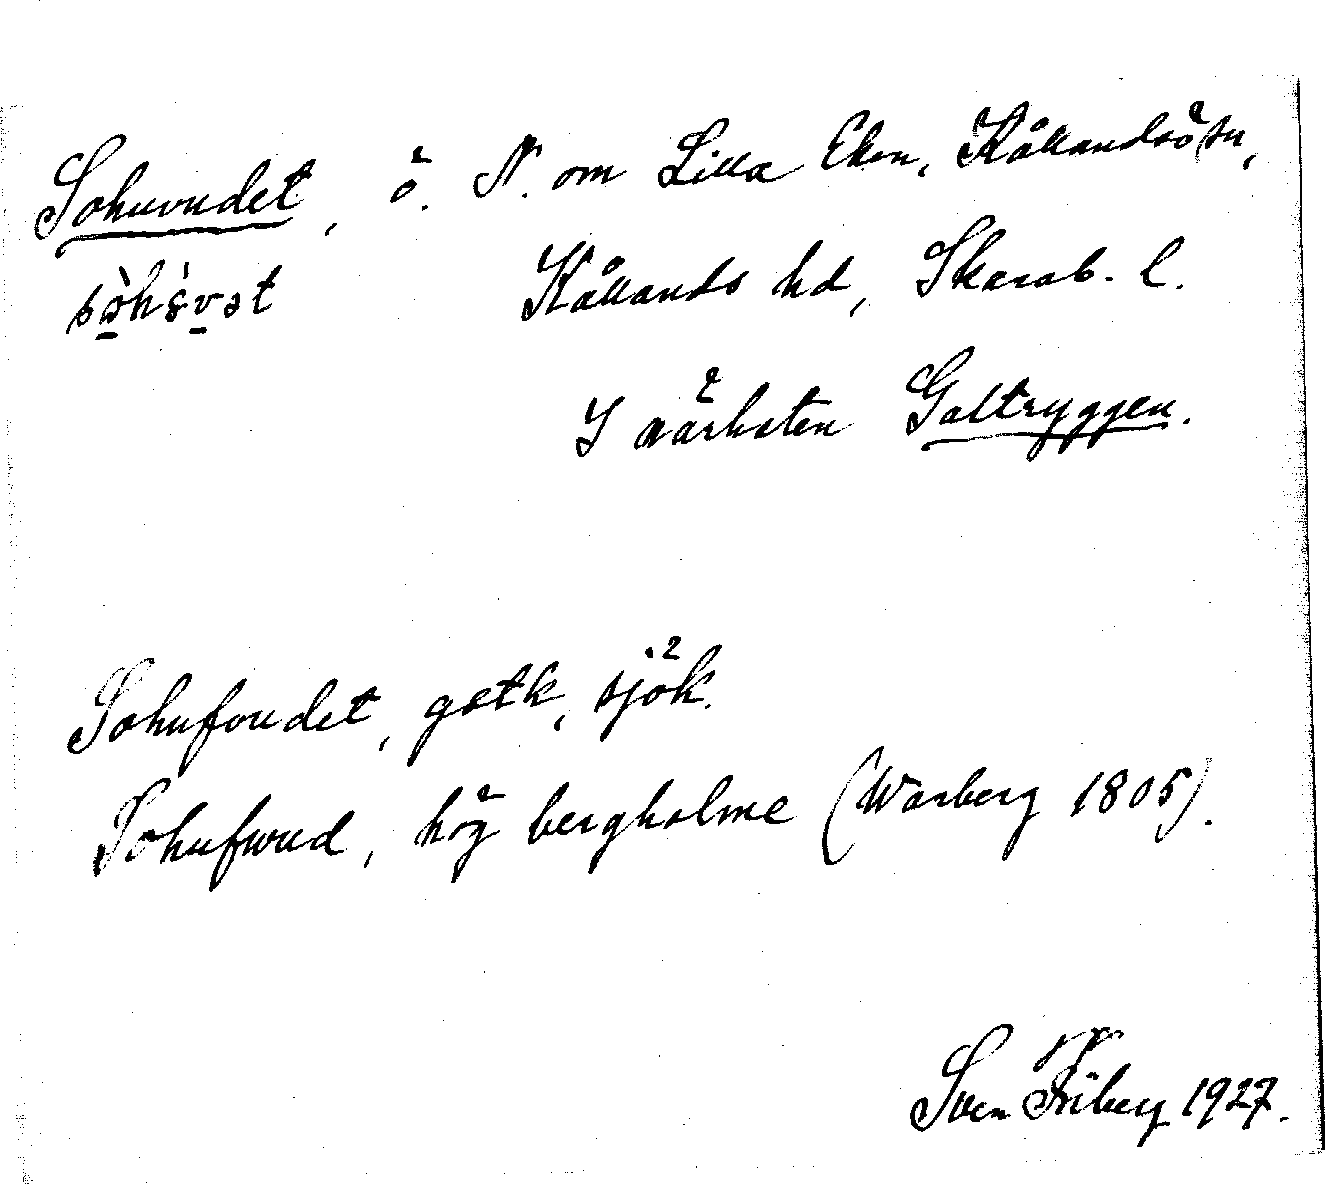 Sohuvudet, ö. N. om Lilla Eken, Kållandsö sn,
Kållands hd, Skarab. l.
I närheten Galtryggen.
Sohufvudet, gstk, sjök.
Sohufwud, hög bergholme (Warberg 1805).
Sven Friberg 1927.